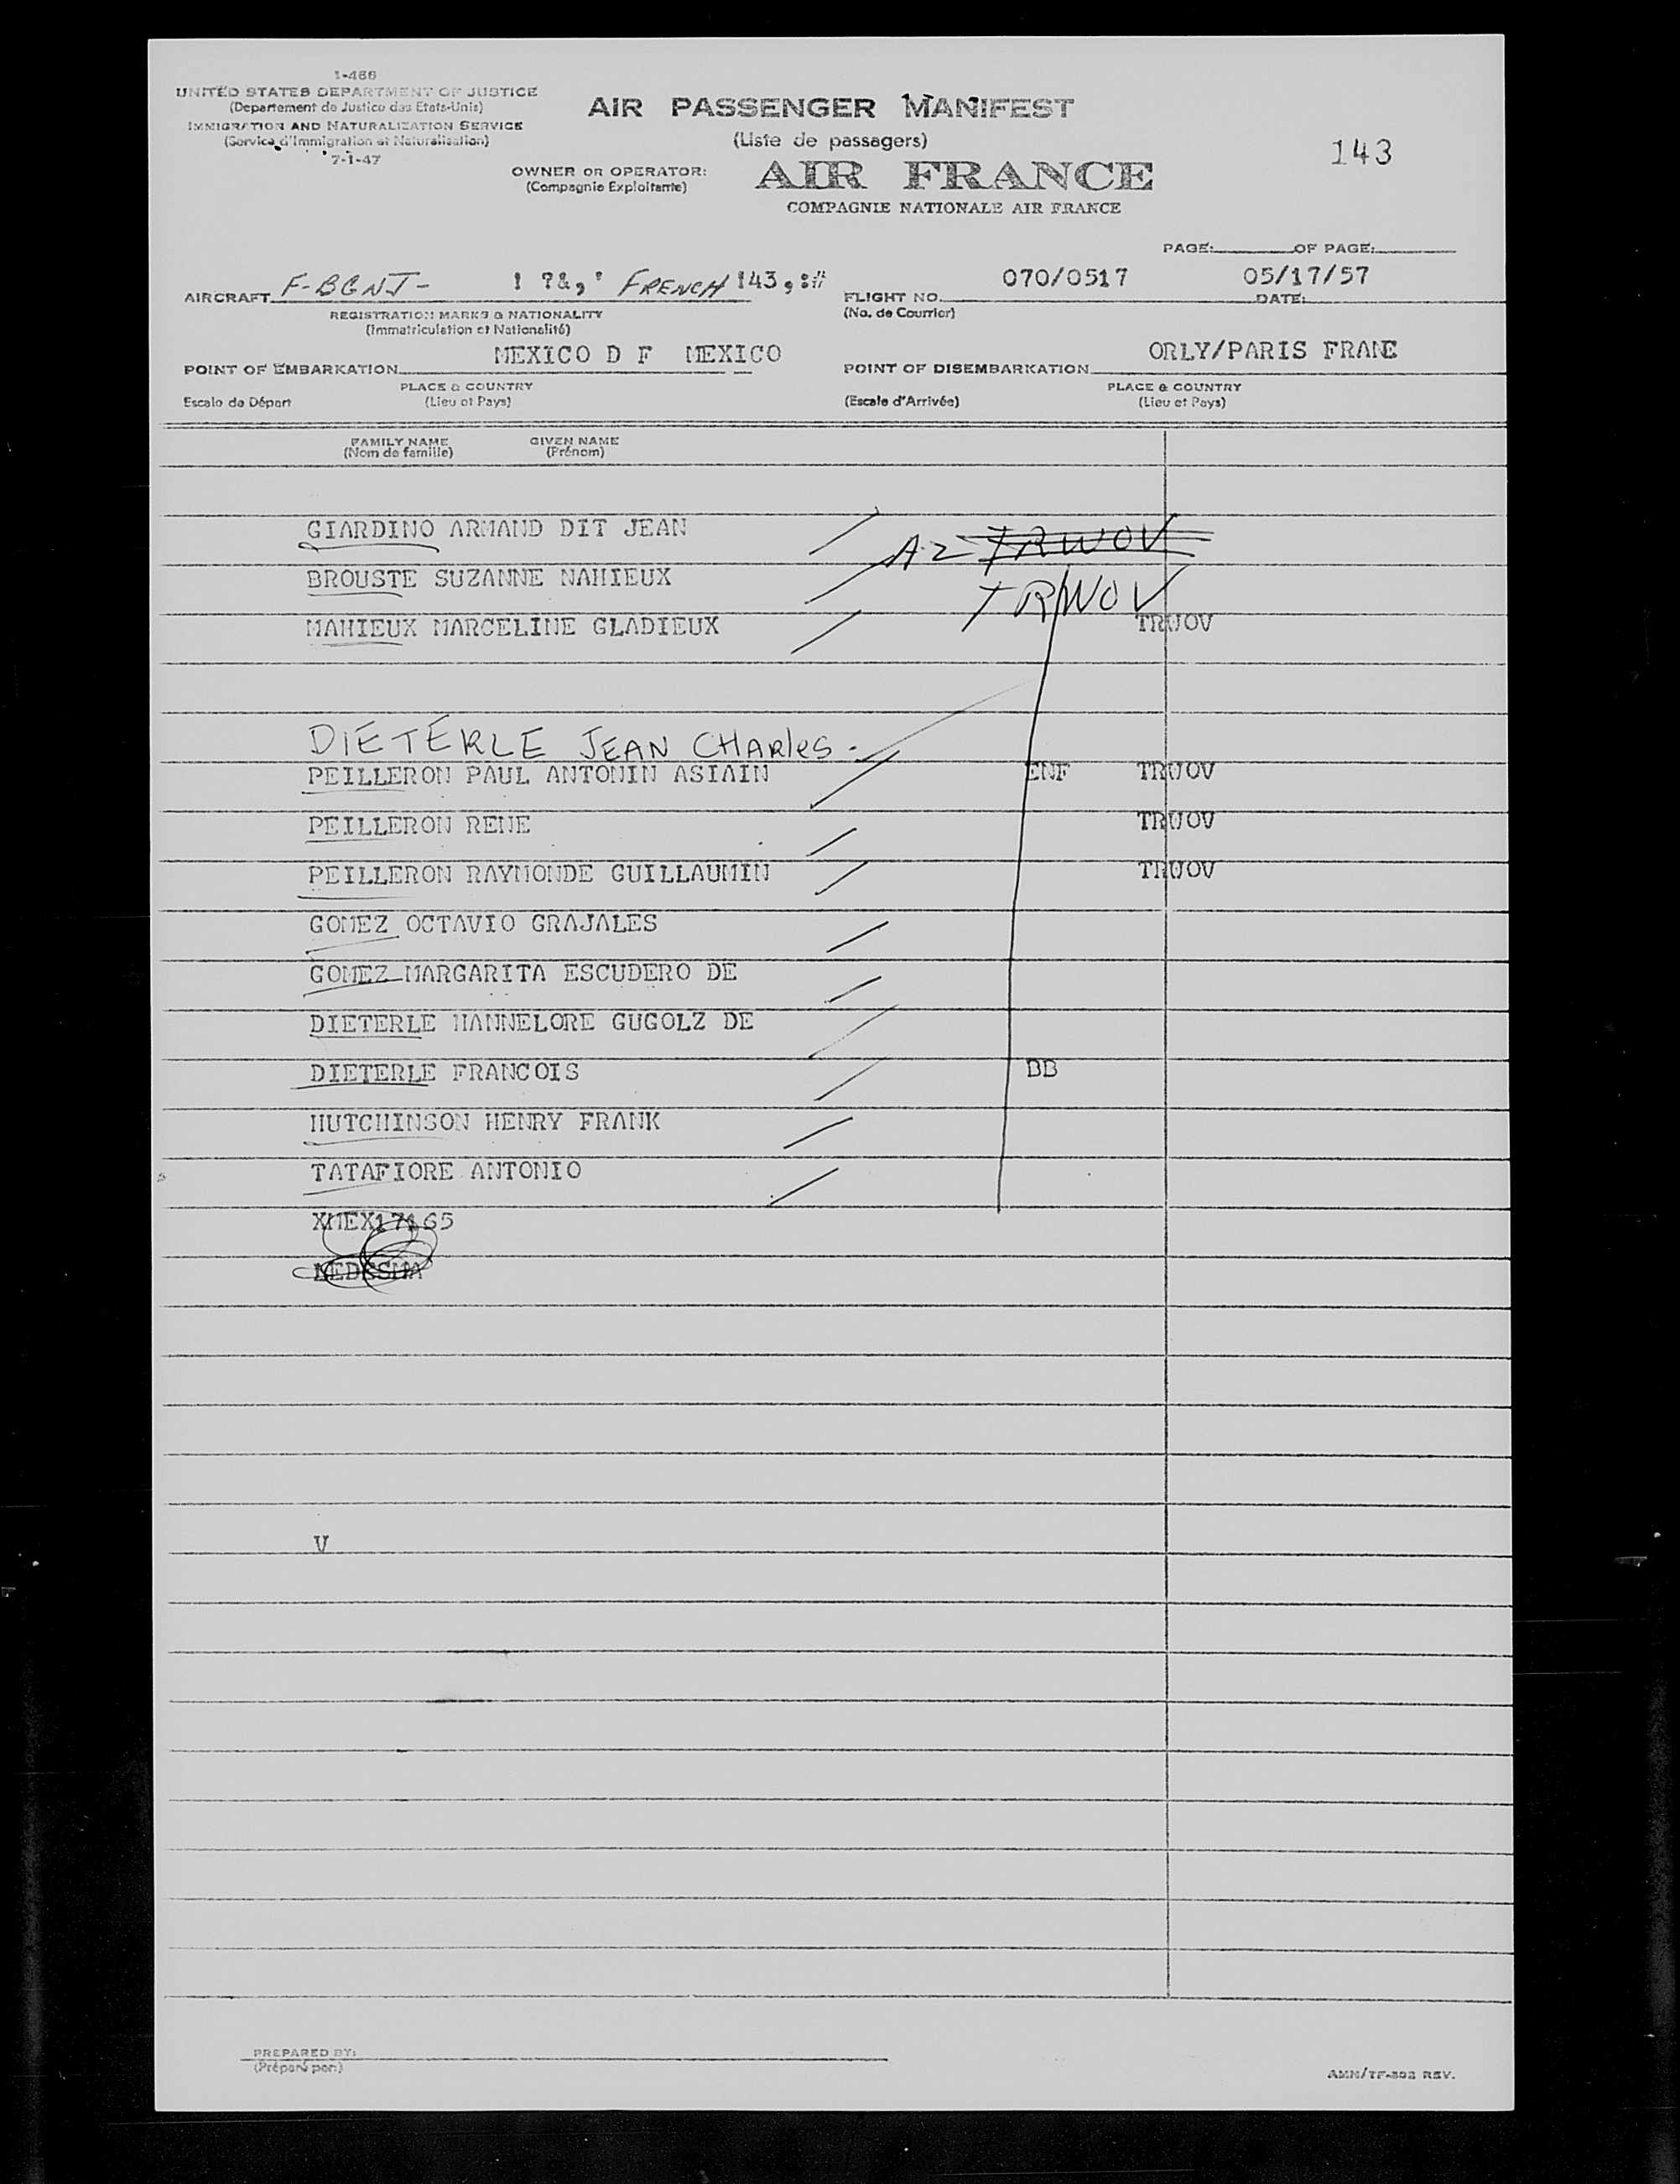 1-466
UNITED STATES DEPARTMENT OF JUSTICE
(Departement de Justice des Etats-Unis)
IMMIGRATION AND NATURALIZATION SERVICE
(Service d'Immigration et Naturalisation)
7-1-47
AIR PASSENGER MANIFEST
(Liste de passagers)
143
OWNER OR OPERATOR: AIR FRANCE
(Compagnie Exploitante)
COMPAGNIE NATIONALE AIR FRANCE
PAGE: OF PAGE:
AIRCRAFT F-BGNJ- ! ?&,' FRENCH !43,:# FLIGHT NO. 070/0517 DATE: 05/17/57
REGISTRATION MARKS & NATIONALITY (No. de Courrier)
(Immatriculation et Nationalité)
POINT OF EMBARKATION MEXICO D F MEXICO POINT OF DISEMBARKATION ORLY/PARIS FRANE
PLACE & COUNTRY PLACE & COUNTRY
Escale de Départ (Lieu et Pays) (Escale d'Arrivée) (Lieu et Pays)
FAMILY NAME GIVEN NAME
(Nom de famille) (Prénom)
GIARDINO ARMAND DIT JEAN
AZ TRWOV
BROUSTE SUZANNE MAHIEUX
TRWOV
MAHIEUX MARCELINE GLADIEUX TRWOV
DIETERLE JEAN CHARLES -
PEILLERON PAUL ANTONIN ASIAIN ENF TRWOV
PEILLERON RENE TRWOV
PEILLERON RAYMONDE GUILLAUMIN TRWOV
GOMEZ OCTAVIO GRAJALES
GOMEZ MARGARITA ESCUDERO DE
DIETERLE HANNELORE GUGOLZ DE
DIETERLE FRANCOIS BB
HUTCHINSON HENRY FRANK
TATAFIORE ANTONIO
XMEX17165
V
PREPARED BY:
(Préparé par:)
AMN/TF-802 REV.